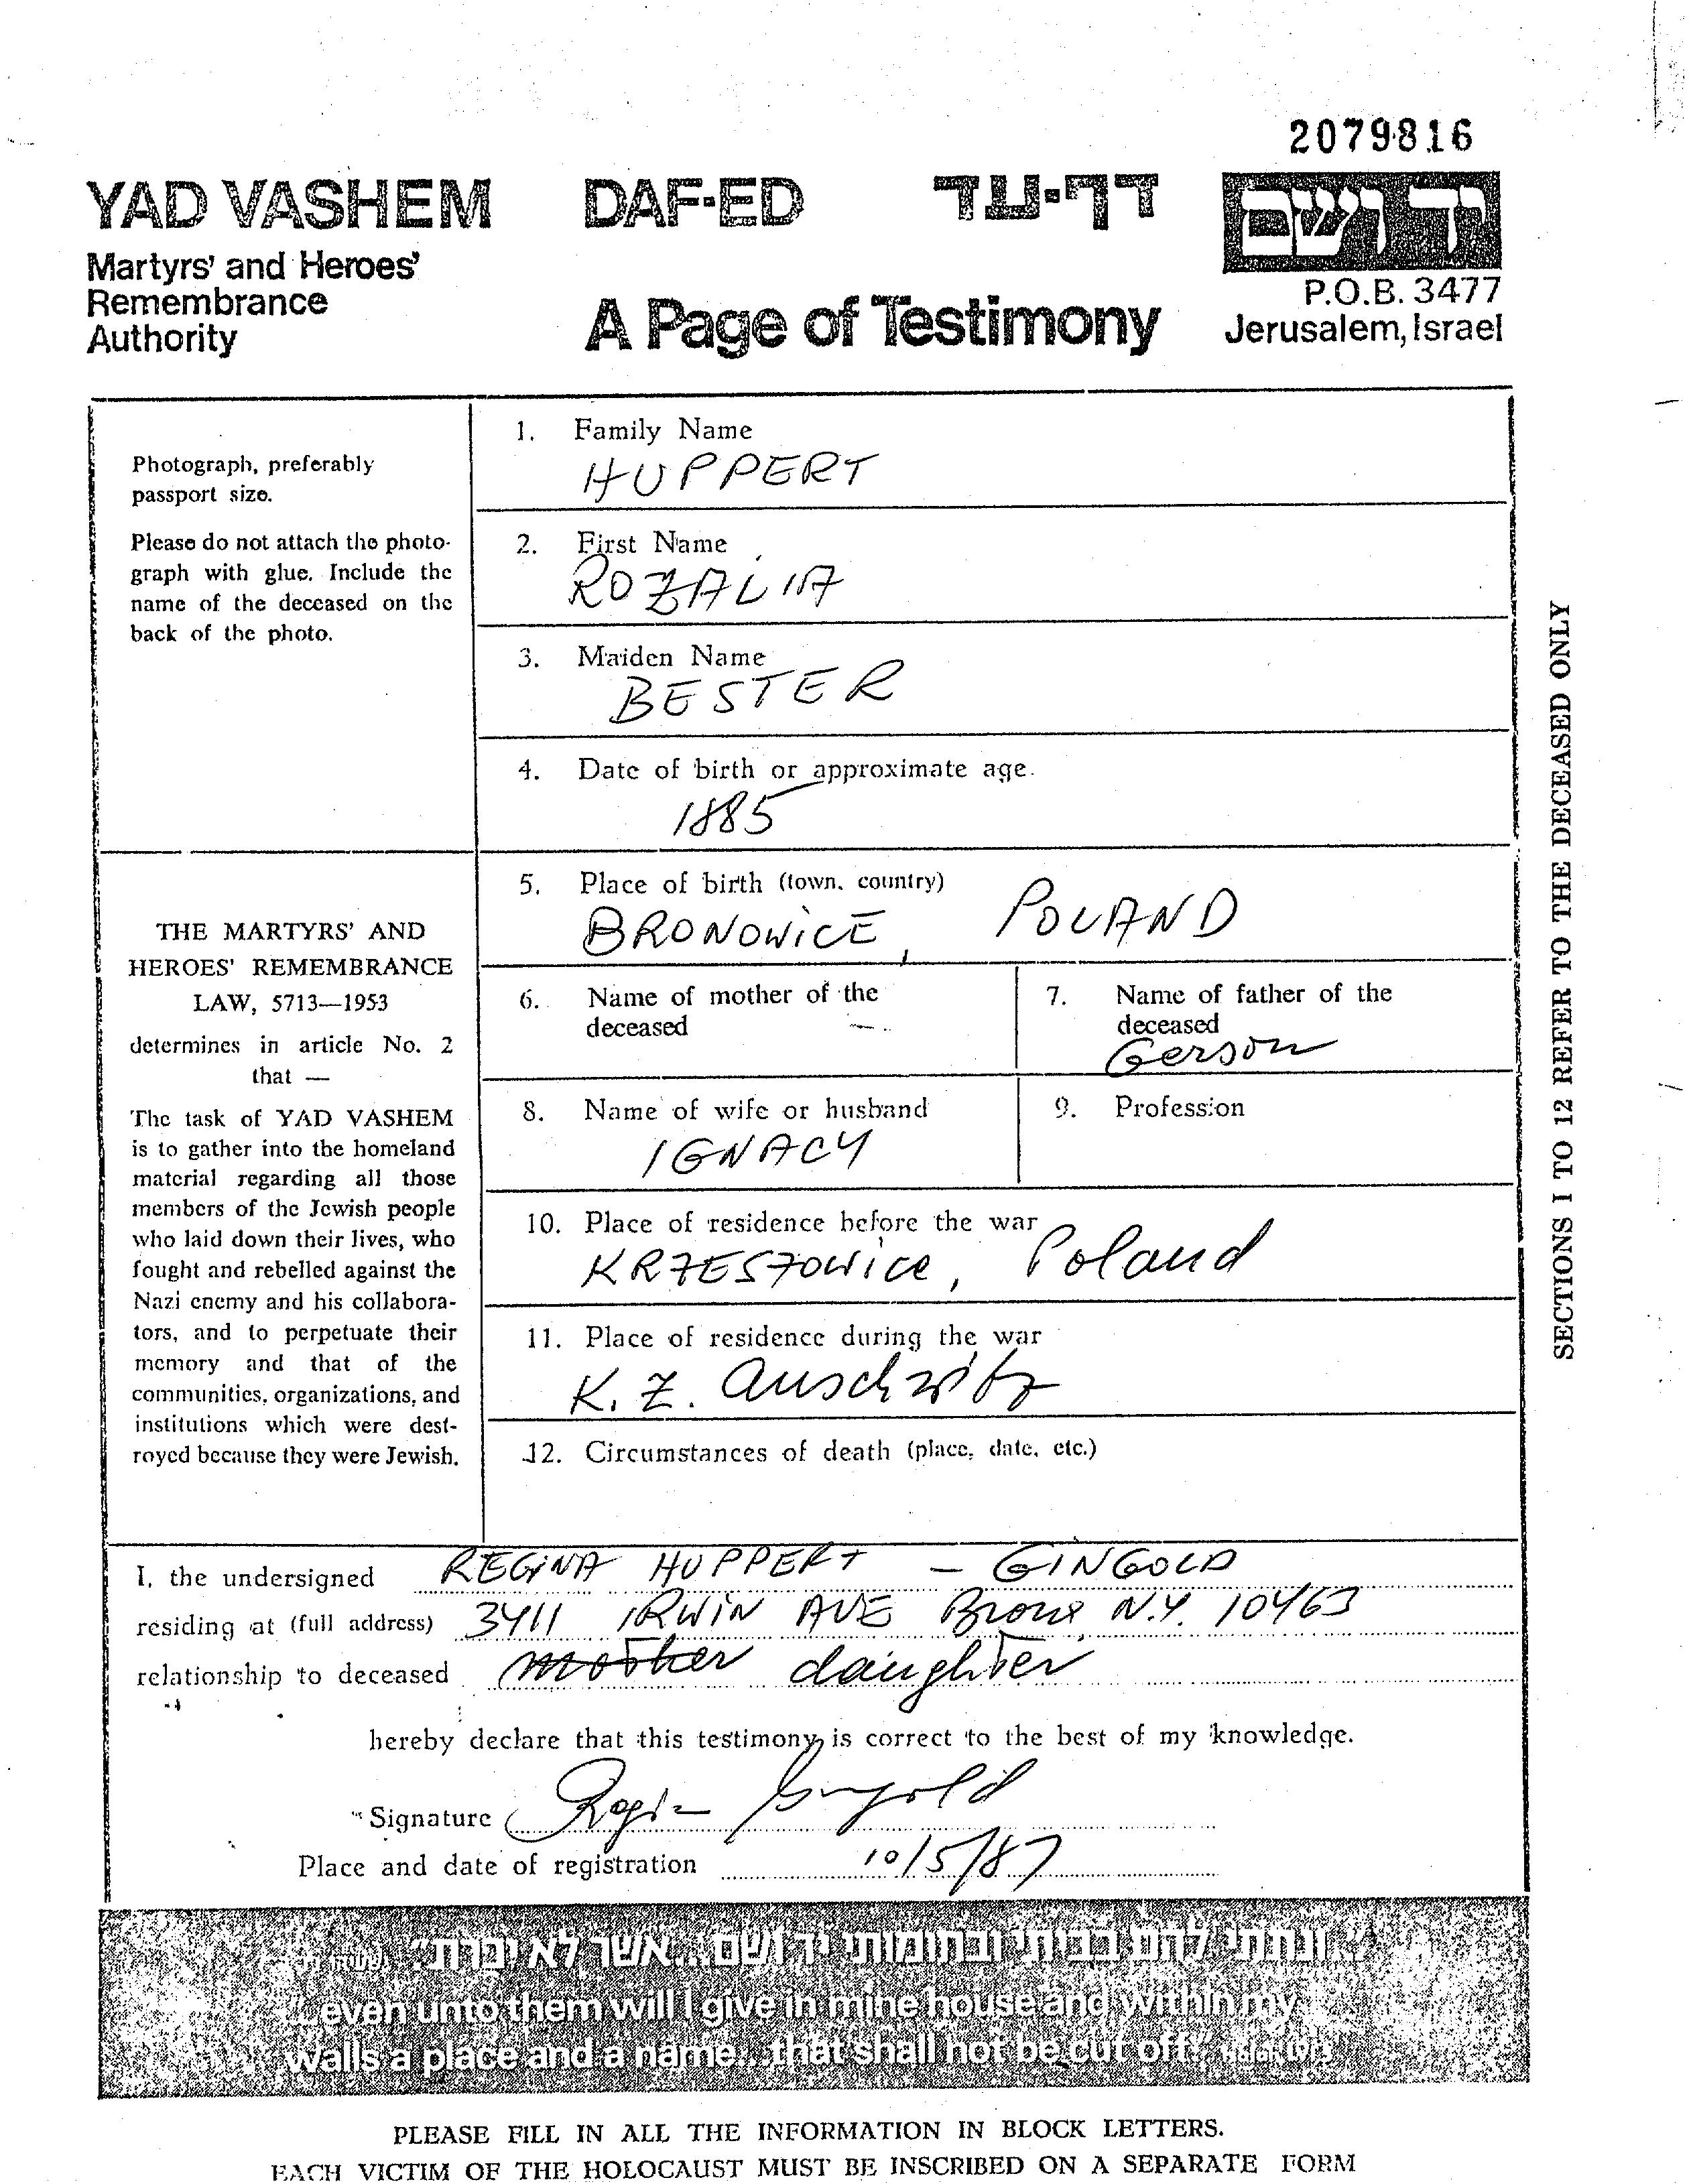 2079816
YAD VASHEM DAF-ED דף-עד יד ושם
Martyrs' and Heroes'
Remembrance
Authority
A Page of Testimony
P.O.B. 3477
Jerusalem, Israel
Photograph, preferably
passport size.
Please do not attach the photo-
graph with glue. Include the
name of the deceased on the
back of the photo.
THE MARTYRS' AND
HEROES' REMEMBRANCE
LAW, 5713—1953
determines in article No. 2
that —
The task of YAD VASHEM
is to gather into the homeland
material regarding all those
members of the Jewish people
who laid down their lives, who
fought and rebelled against the
Nazi enemy and his collabora-
tors, and to perpetuate their
memory and that of the
communities, organizations, and
institutions which were dest-
royed because they were Jewish.
1. Family Name
HUPPERT
2. First Name
ROZALIA
3. Maiden Name
BESTER
4. Date of birth or approximate age.
1885
5. Place of birth (town, country)
BRONOWICE, POLAND
6. Name of mother of the
deceased —
7. Name of father of the
deceased
Gerson
8. Name of wife or husband
IGNACY
9. Profession
10. Place of residence before the war
KRZESZOWICE, Poland
11. Place of residence during the war
K. Z. Auschwitz
12. Circumstances of death (place, date, etc.)
SECTIONS 1 TO 12 REFER TO THE DECEASED ONLY
I, the undersigned REGINA HUPPERT - GINGOLD
residing at (full address) 3411 IRWIN AVE Bronx, N.Y. 10463
relationship to deceased mother daughter
hereby declare that this testimony is correct to the best of my knowledge.
Signature Regina Gingold
Place and date of registration 10/5/87
"...ונתתי להם בביתי ובחומותי יד ושם...אשר לא יכרת"
"...even unto them will I give in mine house and within my
walls a place and a name...that shall not be cut off"
PLEASE FILL IN ALL THE INFORMATION IN BLOCK LETTERS.
EACH VICTIM OF THE HOLOCAUST MUST BE INSCRIBED ON A SEPARATE FORM